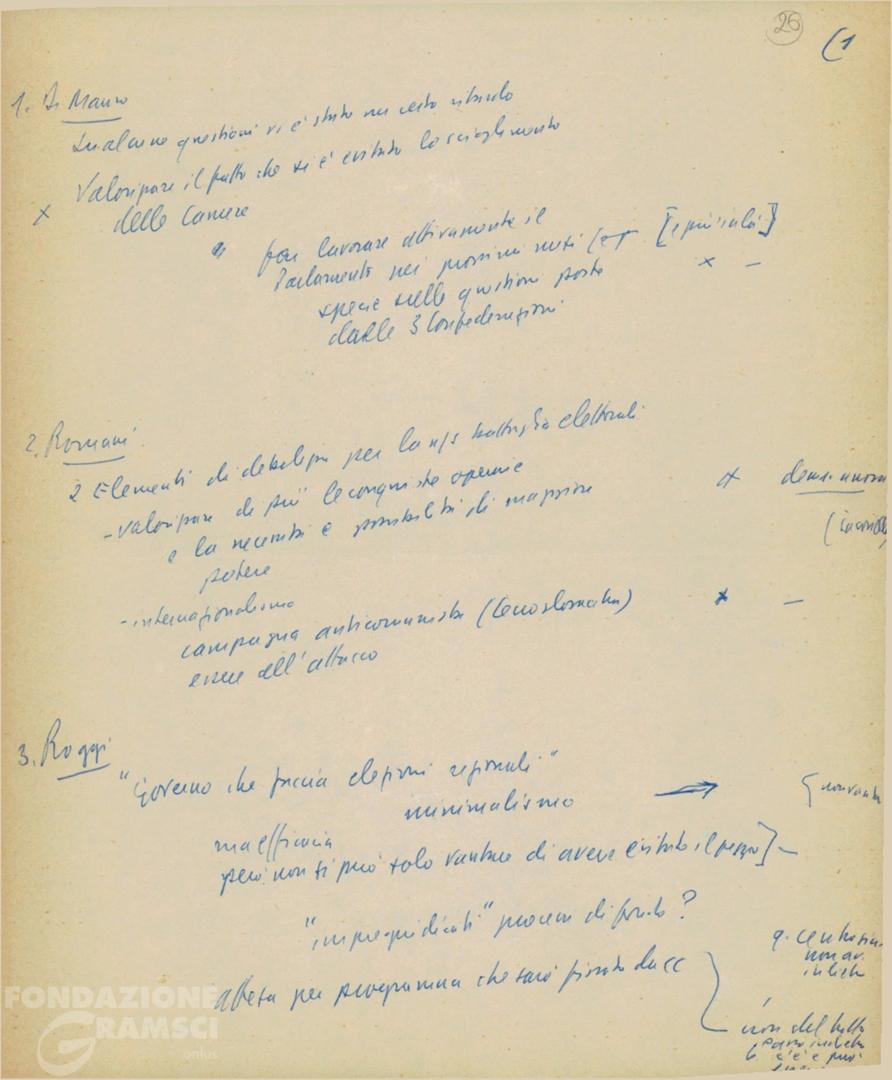 26
(1
1. Di Mauro
In alcune questioni vi è stato un certo ritardo
x Valorizzare il fatto che si è evitato lo scioglimento
delle Camere
" far lavorare attivamente il
Parlamento nei prossimi mesi [e più in là]
specie sulle questioni poste x –
dalle 3 Confederazioni
2. Romani
2 Elementi di debolezza per la ns battaglia elettorale
- valorizzare di più le conquiste operaie x
e la necessità e possibilità di maggiore
potere
- internazionalismo
campagna anticomunista (Cecoslovacchia) x –
essere all'attacco
3. Roggi
"Governo che faccia elezioni regionali"
minimalismo
inefficacia
però non si può solo vantare di avere evitato il peggio] –
"impregiudicati" processi di fondo?
attesa per programma che sarà fissato da CC
non del tutto
FONDAZIONE
GRAMSCI
onlus